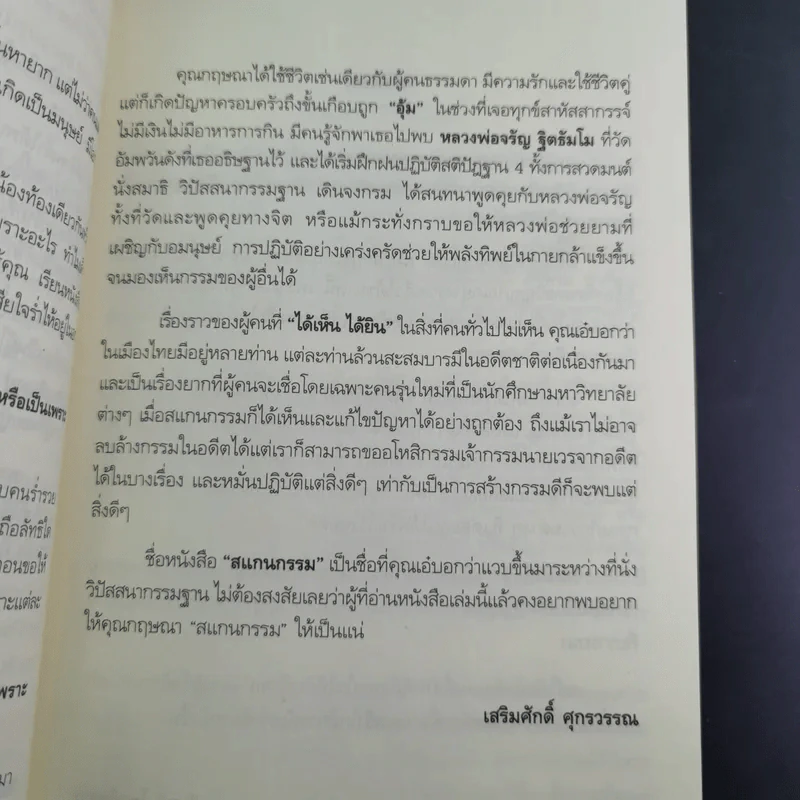 นหายาก แต่ไม่ว่า
เกิดเป็นมนุษย์
น้องท้องเดียวกัน
เพราะอะไร
คุณ เรียนหนัง
เสียใจร่ำไห้อยู่ใน
หรือเป็นเพราะ
บคนร่ำรวย
ถือลัทธิใด
อนขอให้
าะแต่ละ
พราะ
มา
คุณกฤษณาได้ใช้ชีวิตเช่นเดียวกับผู้คนธรรมดา มีความรักและใช้ชีวิตคู่
แต่ก็เกิดปัญหาครอบครัวถึงขั้นเกือบถูก “อุ้ม” ในช่วงที่เจอทุกข์สาหัสสากรรจ์
ไม่มีเงินไม่มีอาหารการกิน มีคนรู้จักพาเธอไปพบ หลวงพ่อจรัญ ฐิตธัมโม ที่วัด
อัมพวันดังที่เธออธิษฐานไว้ และได้เริ่มฝึกฝนปฏิบัติสติปัฏฐาน 4 ทั้งการสวดมนต์
นั่งสมาธิ วิปัสสนากรรมฐาน เดินจงกรม ได้สนทนาพูดคุยกับหลวงพ่อจรัญ
ทั้งที่วัดและพูดคุยทางจิต หรือแม้กระทั่งกราบขอให้หลวงพ่อช่วยยามที่
เผชิญกับอมนุษย์ การปฏิบัติอย่างเคร่งครัดช่วยให้พลังทิพย์ในกายกล้าแข็งขึ้น
จนมองเห็นกรรมของผู้อื่นได้
เรื่องราวของผู้คนที่ “ได้เห็น ได้ยิน” ในสิ่งที่คนทั่วไปไม่เห็น คุณเอ๋บอกว่า
ในเมืองไทยมีอยู่หลายท่าน แต่ละท่านล้วนสะสมบารมีในอดีตชาติต่อเนื่องกันมา
และเป็นเรื่องยากที่ผู้คนจะเชื่อโดยเฉพาะคนรุ่นใหม่ที่เป็นนักศึกษามหาวิทยาลัย
ต่างๆ เมื่อสแกนกรรมก็ได้เห็นและแก้ไขปัญหาได้อย่างถูกต้อง ถึงแม้เราไม่อาจ
ลบล้างกรรมในอดีตได้แต่เราก็สามารถขออโหสิกรรมเจ้ากรรมนายเวรจากอดีต
ได้ในบางเรื่อง และหมั่นปฏิบัติแต่สิ่งดีๆ เท่ากับเป็นการสร้างกรรมดีก็จะพบแต่
สิ่งดีๆ
ชื่อหนังสือ “สแกนกรรม” เป็นชื่อที่คุณเอ๋บอกว่าแวบขึ้นมาระหว่างที่นั่ง
วิปัสสนากรรมฐาน ไม่ต้องสงสัยเลยว่าผู้ที่อ่านหนังสือเล่มนี้แล้วคงอยากพบอยาก
ให้คุณกฤษณา “สแกนกรรม” ให้เป็นแน่
เสริมศักดิ์ ศุกรวรรณ